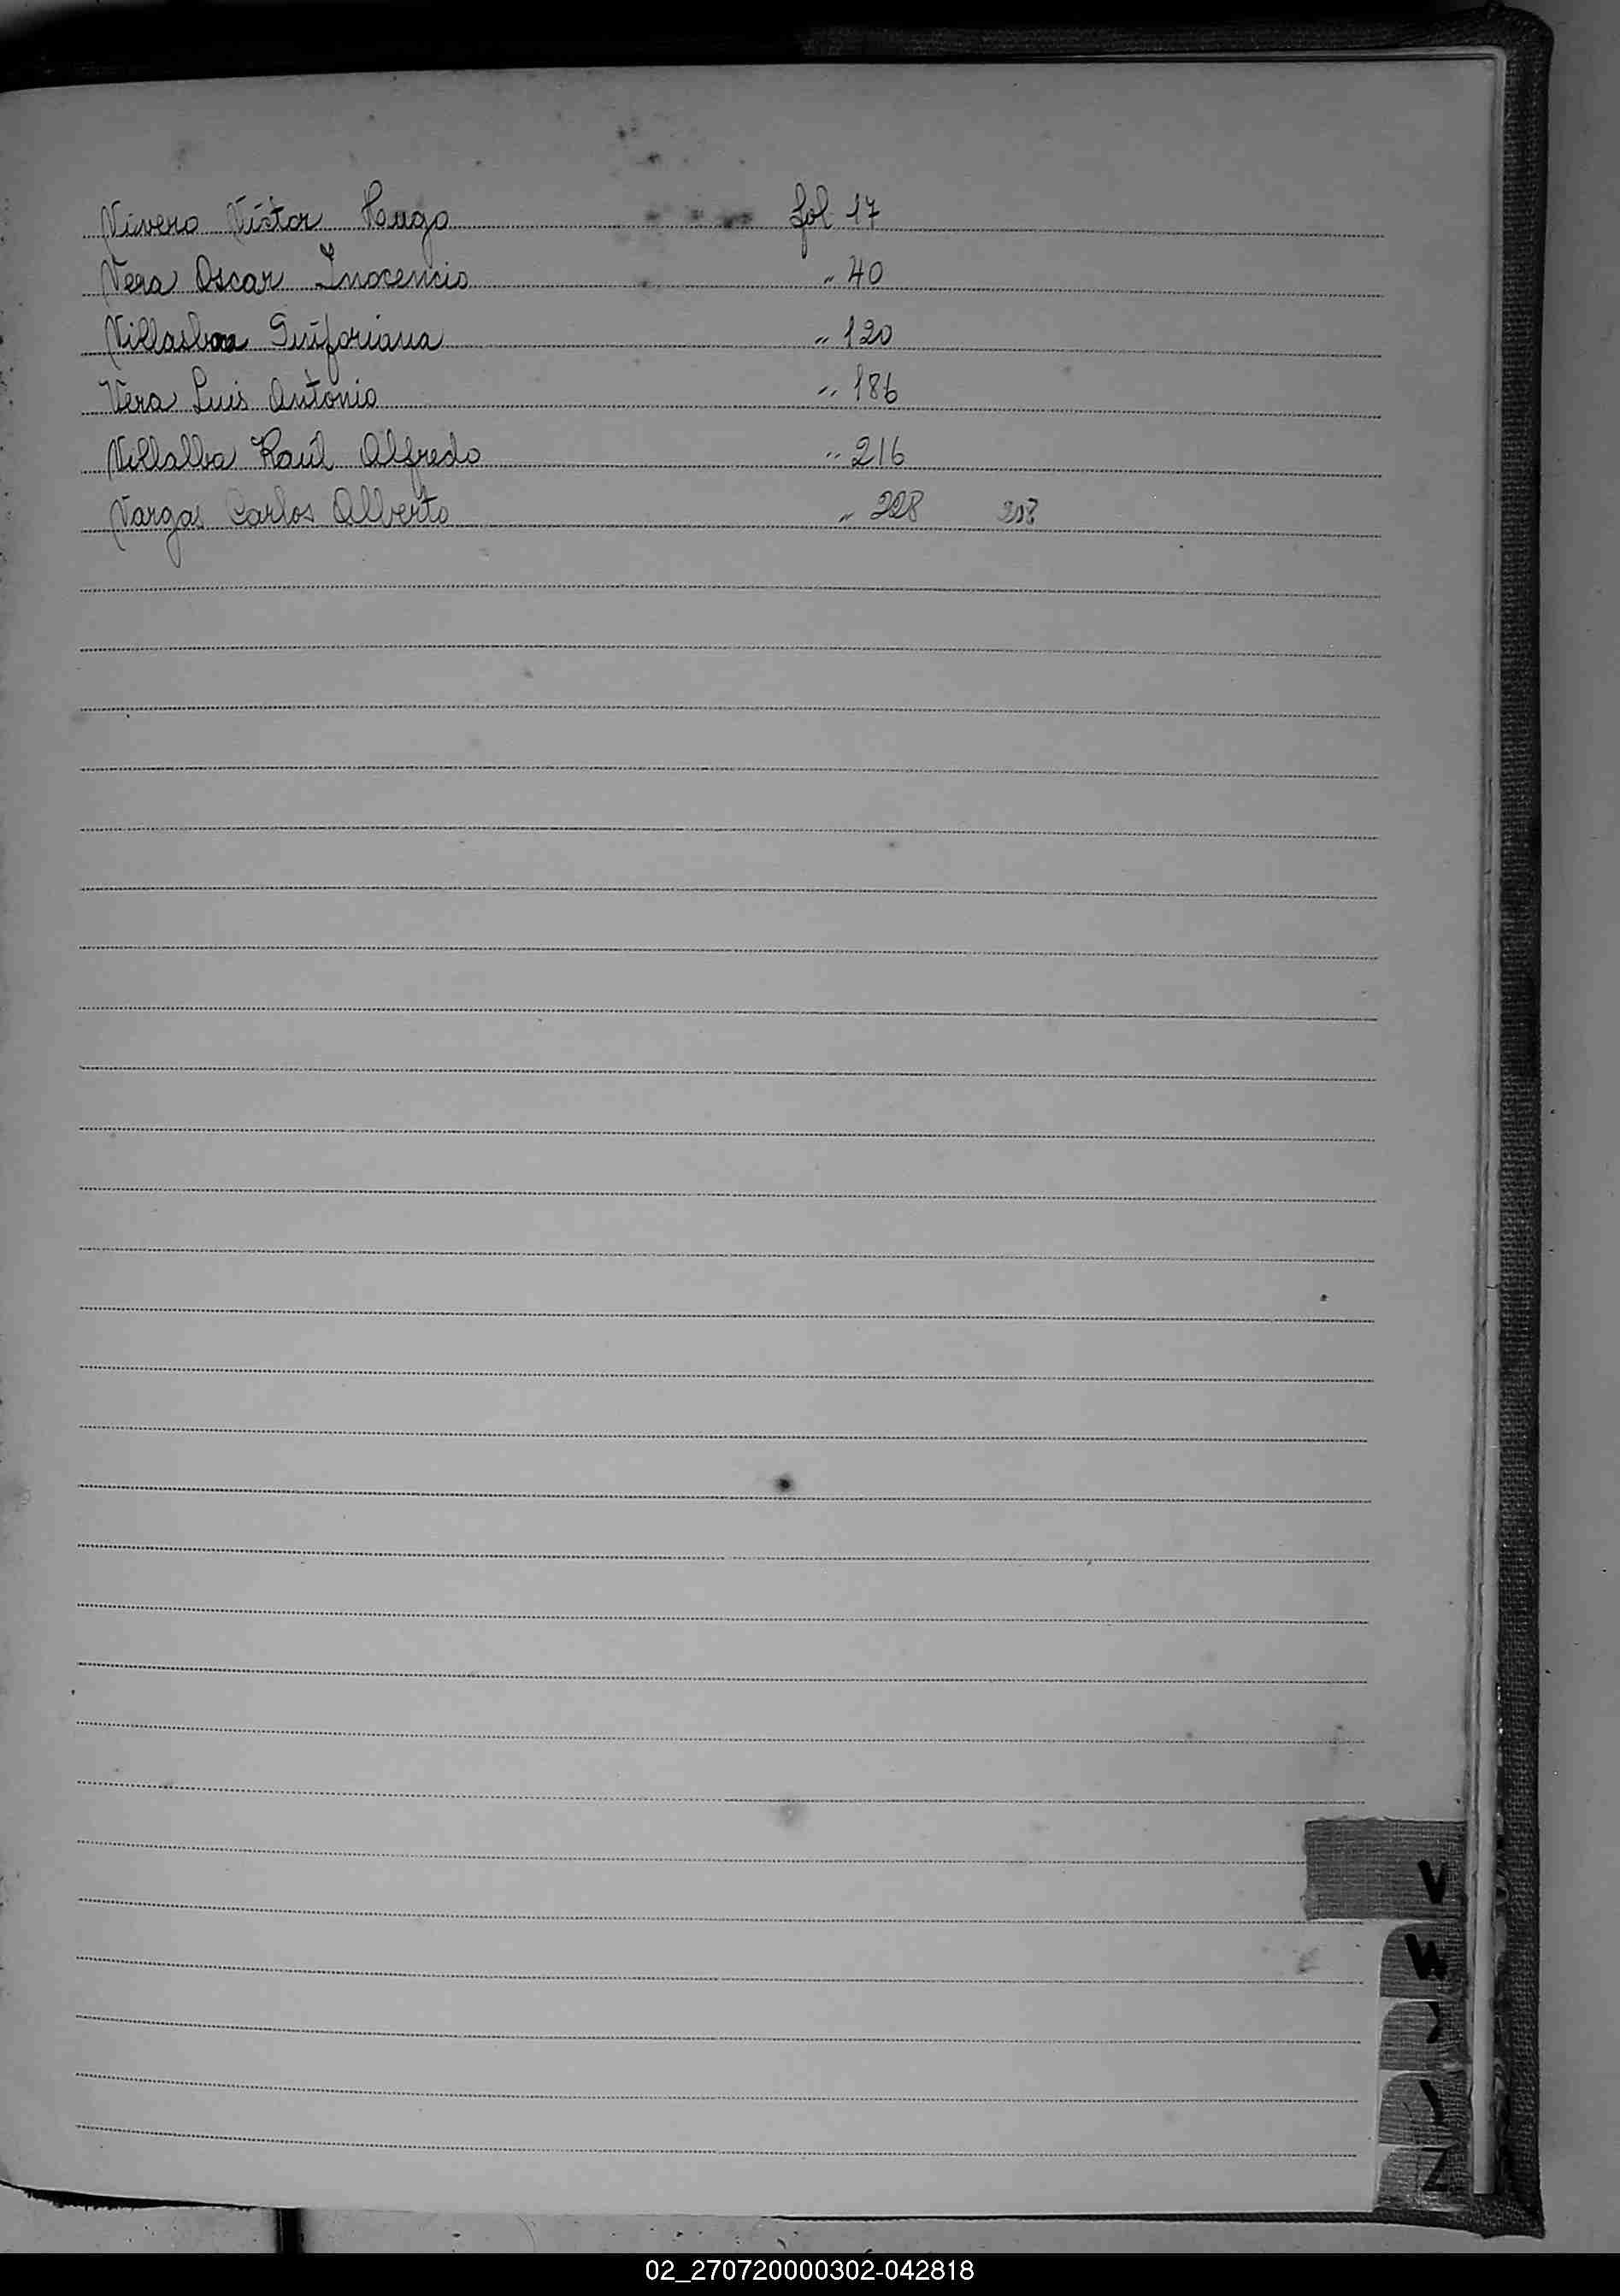 Vivero Víctor Hugo fol 17
Vera Oscar Inocencio " 40
Villasboa Sinforiana " 120
Vera Luis Antonio " 186
Villalba Raúl Alfredo " 216
Vargas Carlos Alberto " 228
V
W
Z
02_270720000302-042818